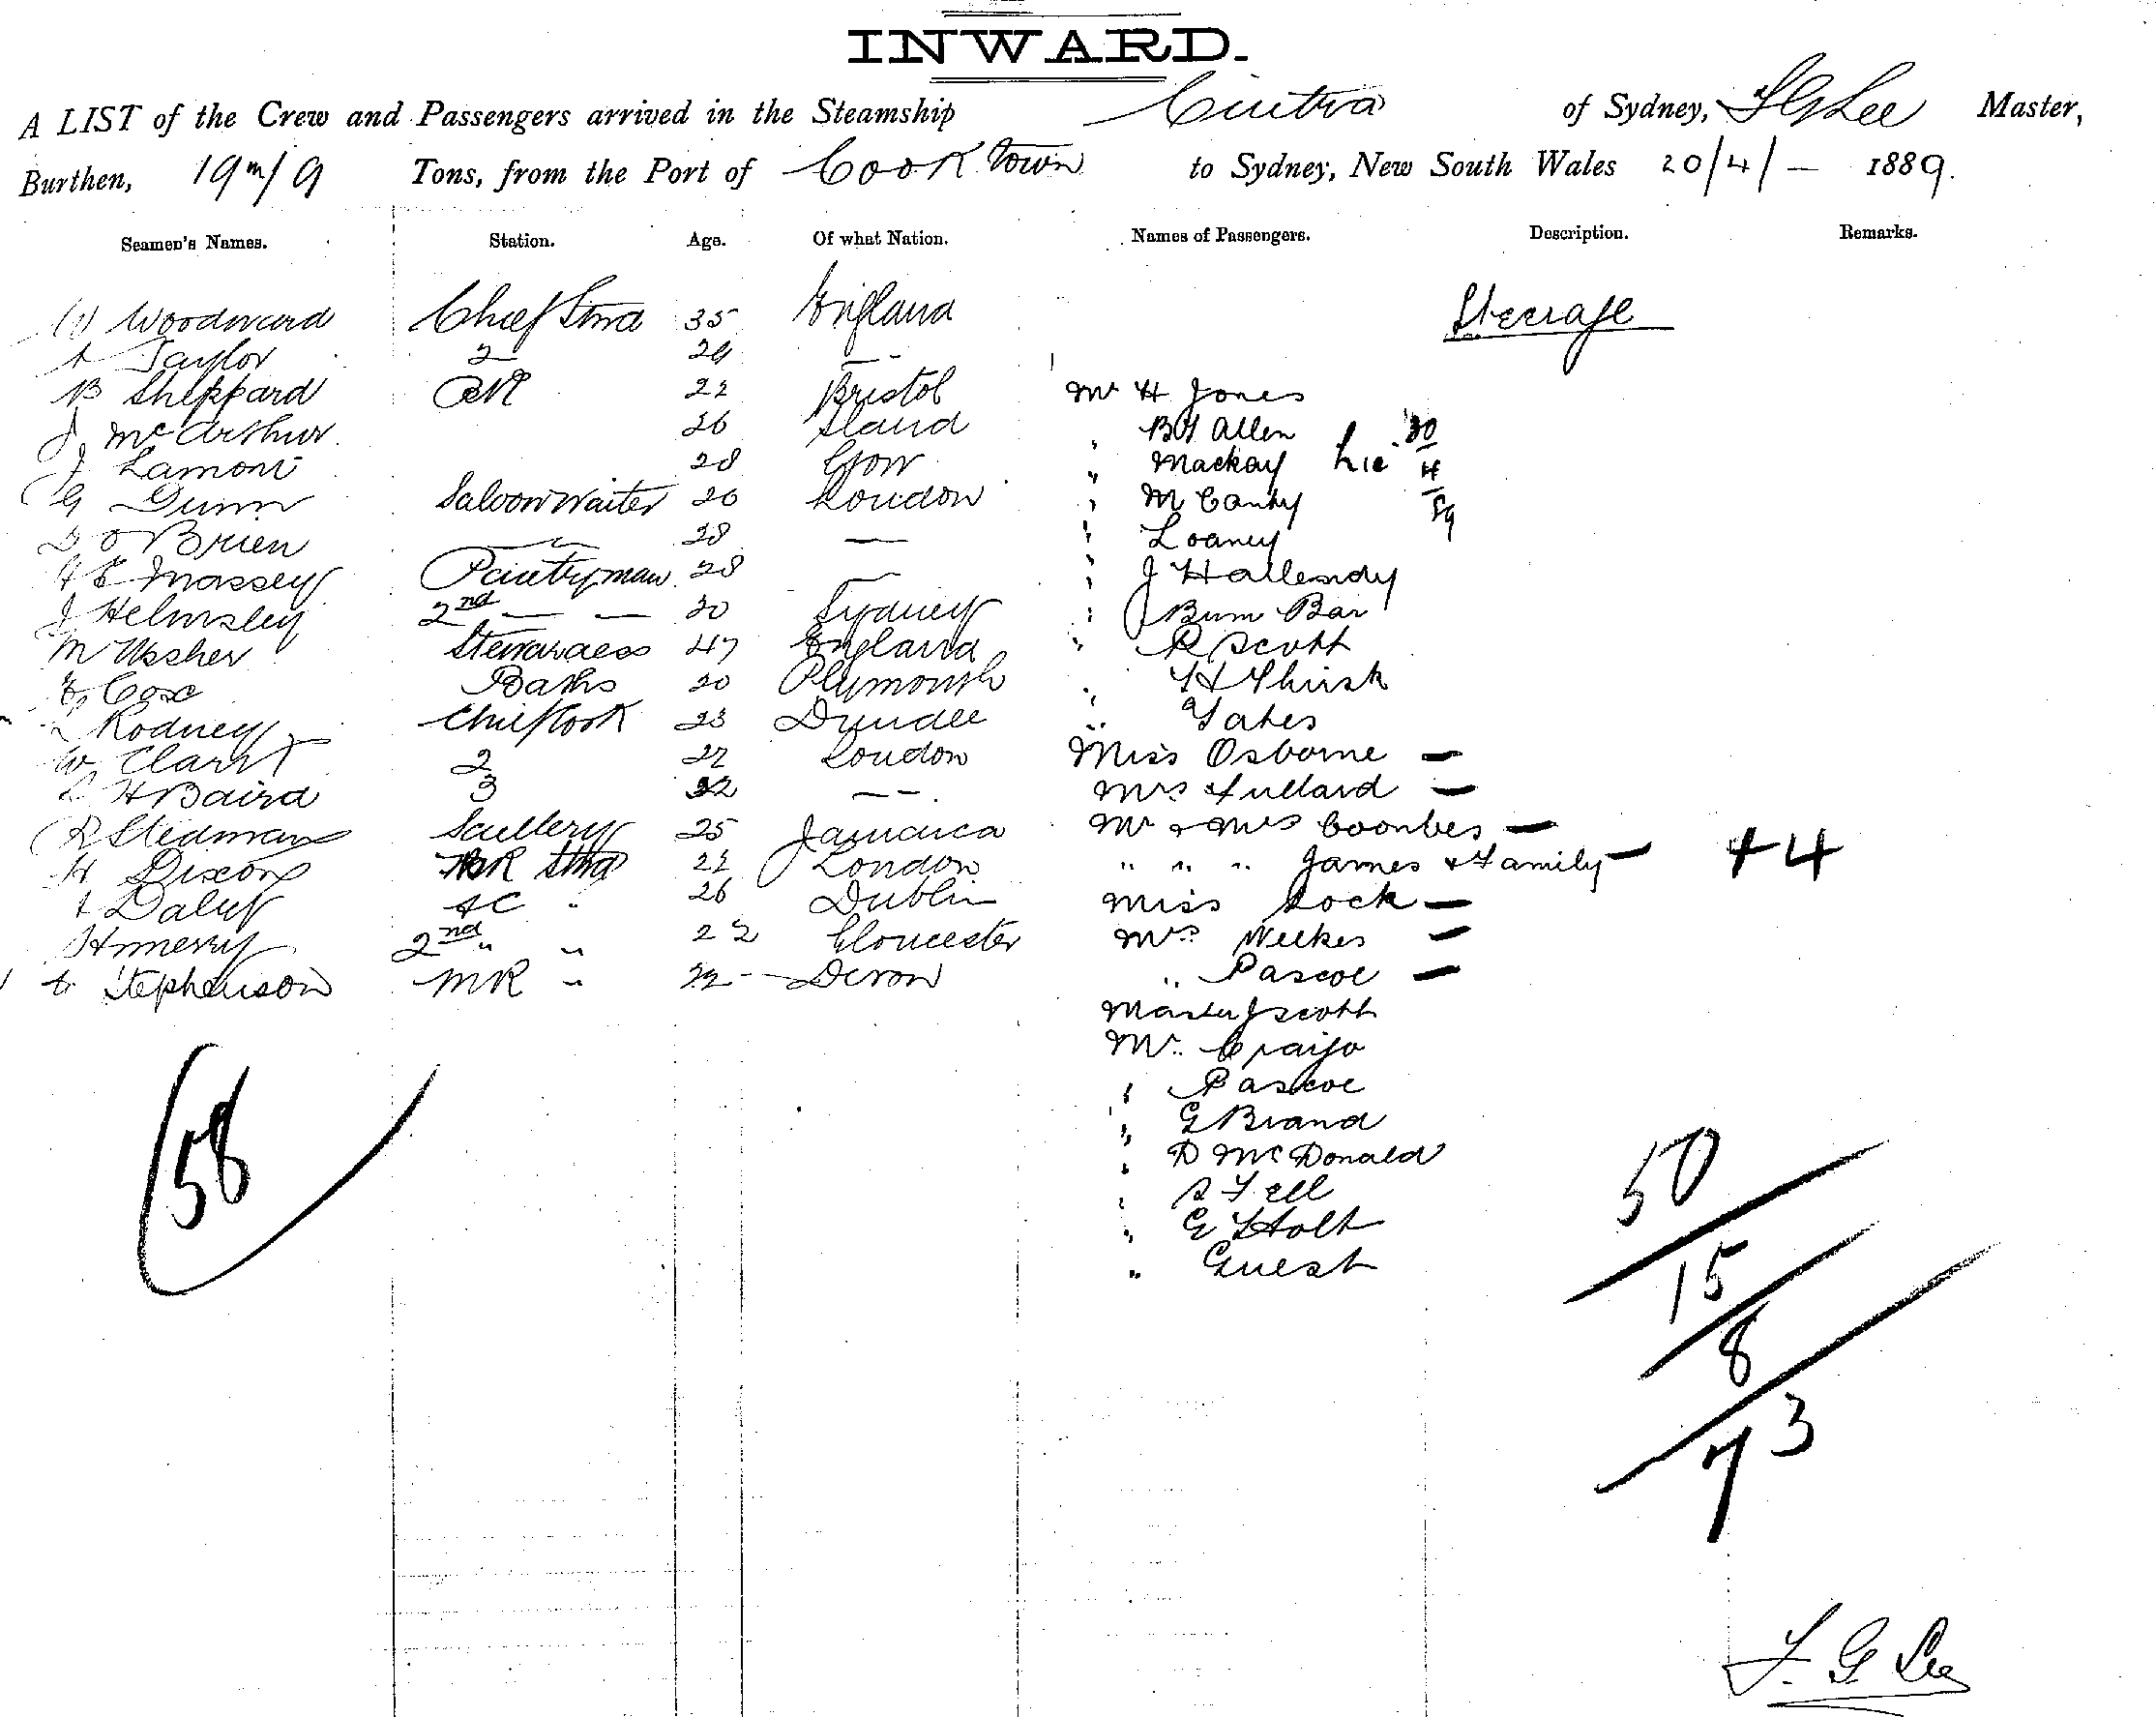 INWARD.
A LIST of the Crew and Passengers arrived in the Steamship Cintra of Sydney, F G Lee Master,
Burthen, 19 m/9 Tons, from the Port of Cooktown to Sydney, New South Wales 20/4/- 1889.
Seamen's Names. Station. Age. Of what Nation. Names of Passengers. Description. Remarks.
Steerage
W Woodward Chief Stwd 35 England
A Taylor 2 24 — -
B Sheppard 22 Bristol Mr H Jones
J McArthur 26 " B Allen
J Lamont 28 Gow " Mackay Lic 20/4/89
G Dunn Saloon Waiter 26 London " M Canty
D O Brien 28 — " Loaney
H E Massey Pantryman 28 — " J Hallendy
J Helmsley 2nd — — 20 Sydney " Bum Bar
M Ussher Stewardess 47 England " R Scott
E Cox Baths 20 Plymouth " H Thirsk
Rodney Chief Cook 23 Dundee " Yates
W Clark 2 22 London Miss Osborne —
H Baird 3 32 — - . Mrs Fullard —
R Stedman Scullery 25 Jamaica Mr & Mrs Coombes —
H Dixon BR Stwd 22 London " " " James & Family — +4
Daly " 26 Dublin Miss Lock —
Henery 2nd " " 22 Gloucester Mrs Wilkes —
Stephenson MR " 22 — Devon " Pascoe —
Master J Scott
Mr Craijo
" Pascoe
" G Brand
" D McDonald
" Fell
" E Holt
" Guest
58
50
15
8
73
F. G. Lee